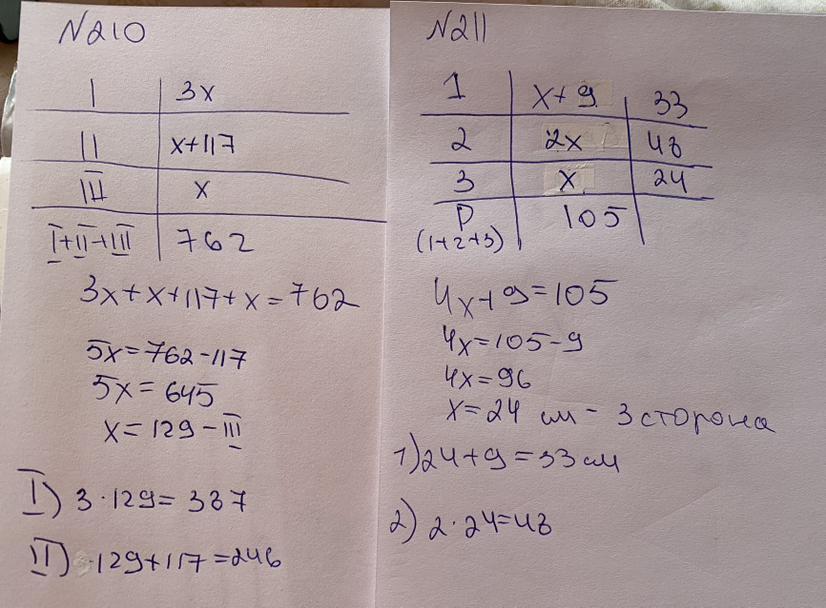 N210
I 3x
II x+117
III x
I+II+III 762
3x+x+117+x=762
5x=762-117
5x=645
x=129-III
I) 3·129=387
II) ·129+117=246
N211
1 x+9 33
2 2x 48
3 x 24
P 105
(1+2+3)
4x+9=105
4x=105-9
4x=96
x=24 см - 3 сторона
1) 24+9=33 см
2) 2·24=48